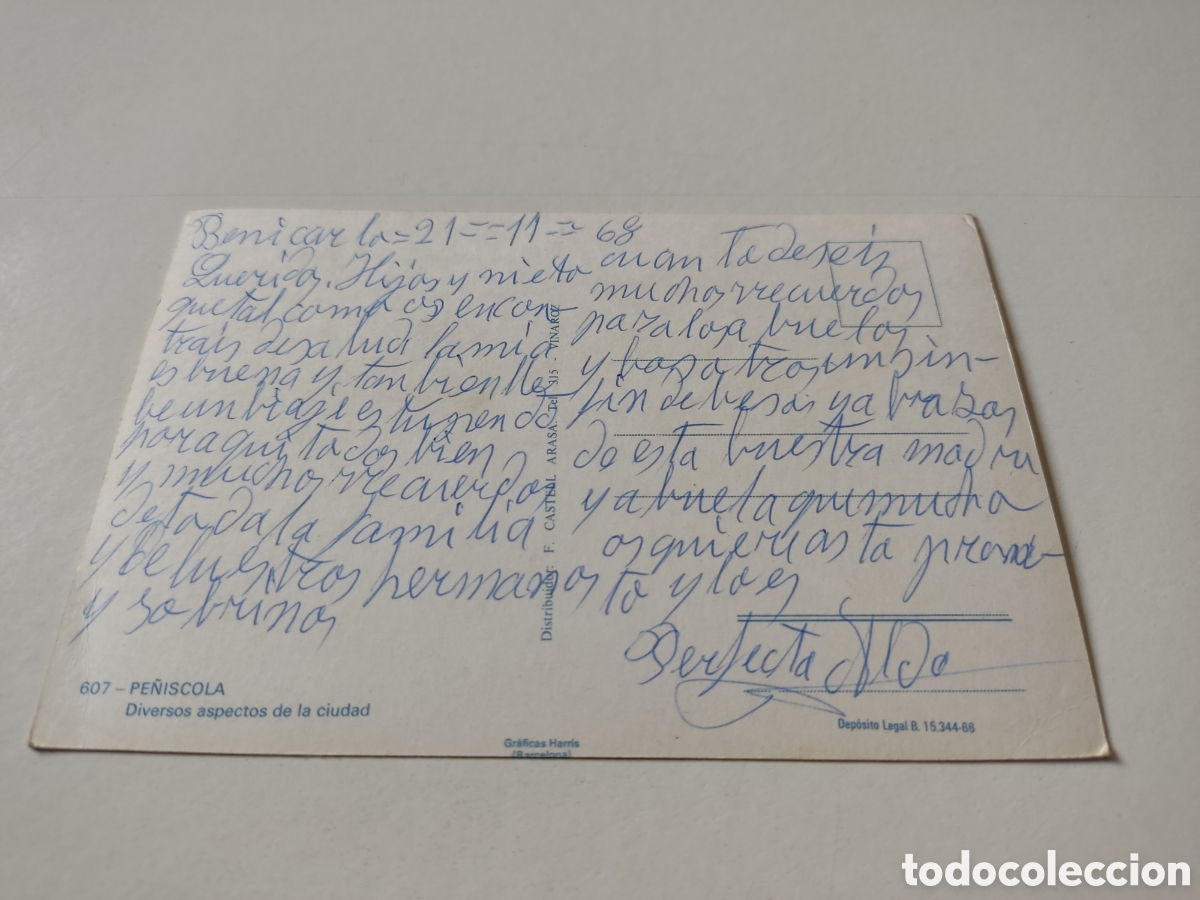 Benicarlo = 21 = = 11 = 68
Queridos, Hijos y nieto
que tal como os encon-
trais de salud la mia
es buena y tanbien lle
be un biage estupendo
por aqui todos bien
y muchos rrecuerdos
de toda la familia
y de buestros hermanos
y sobrinos
cuanta deseis
muchos rrecuerdos
para los a buelos
y bosotros un sin-
fin de besos y abrazos
de esta buestra madre
y abuela que mucho
os quier asta prome-
to y lo es
Perfecta Aldo
Distribuidor: F. CASTELL ARASA. Tel. 315 - VINAROZ
607 – PEÑISCOLA
Diversos aspectos de la ciudad
Gráficas Harris
(Barcelona)
Depósito Legal B. 15.344-66
todocoleccion